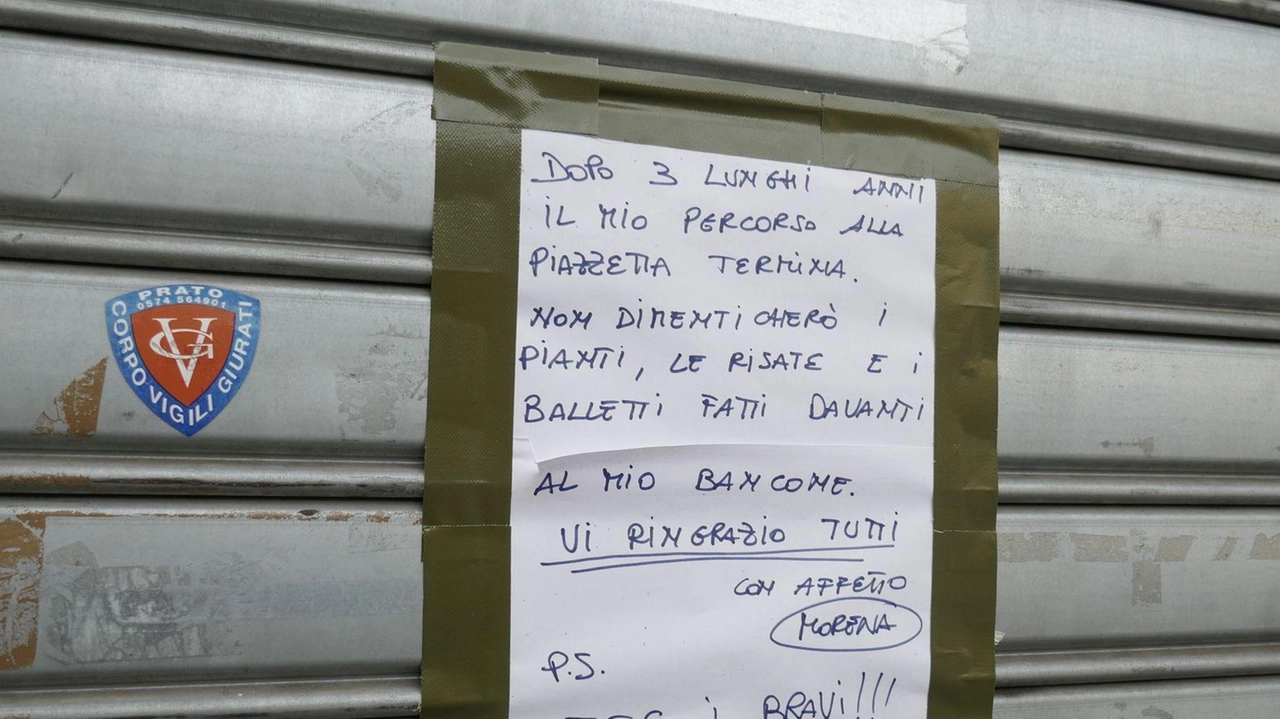 PRATO
0574 564901
CORPO VIGILI GIURATI
VG
DOPO 3 LUNGHI ANNI
IL MIO PERCORSO ALLA
PIAZZETTA TERMINA.
NON DIMENTICHERÒ I
PIANTI, LE RISATE E I
BALLETTI FATTI DAVANTI
AL MIO BANCONE.
VI RINGRAZIO TUTTI
CON AFFETTO
MORENA
P.S.
I BRAVI!!!